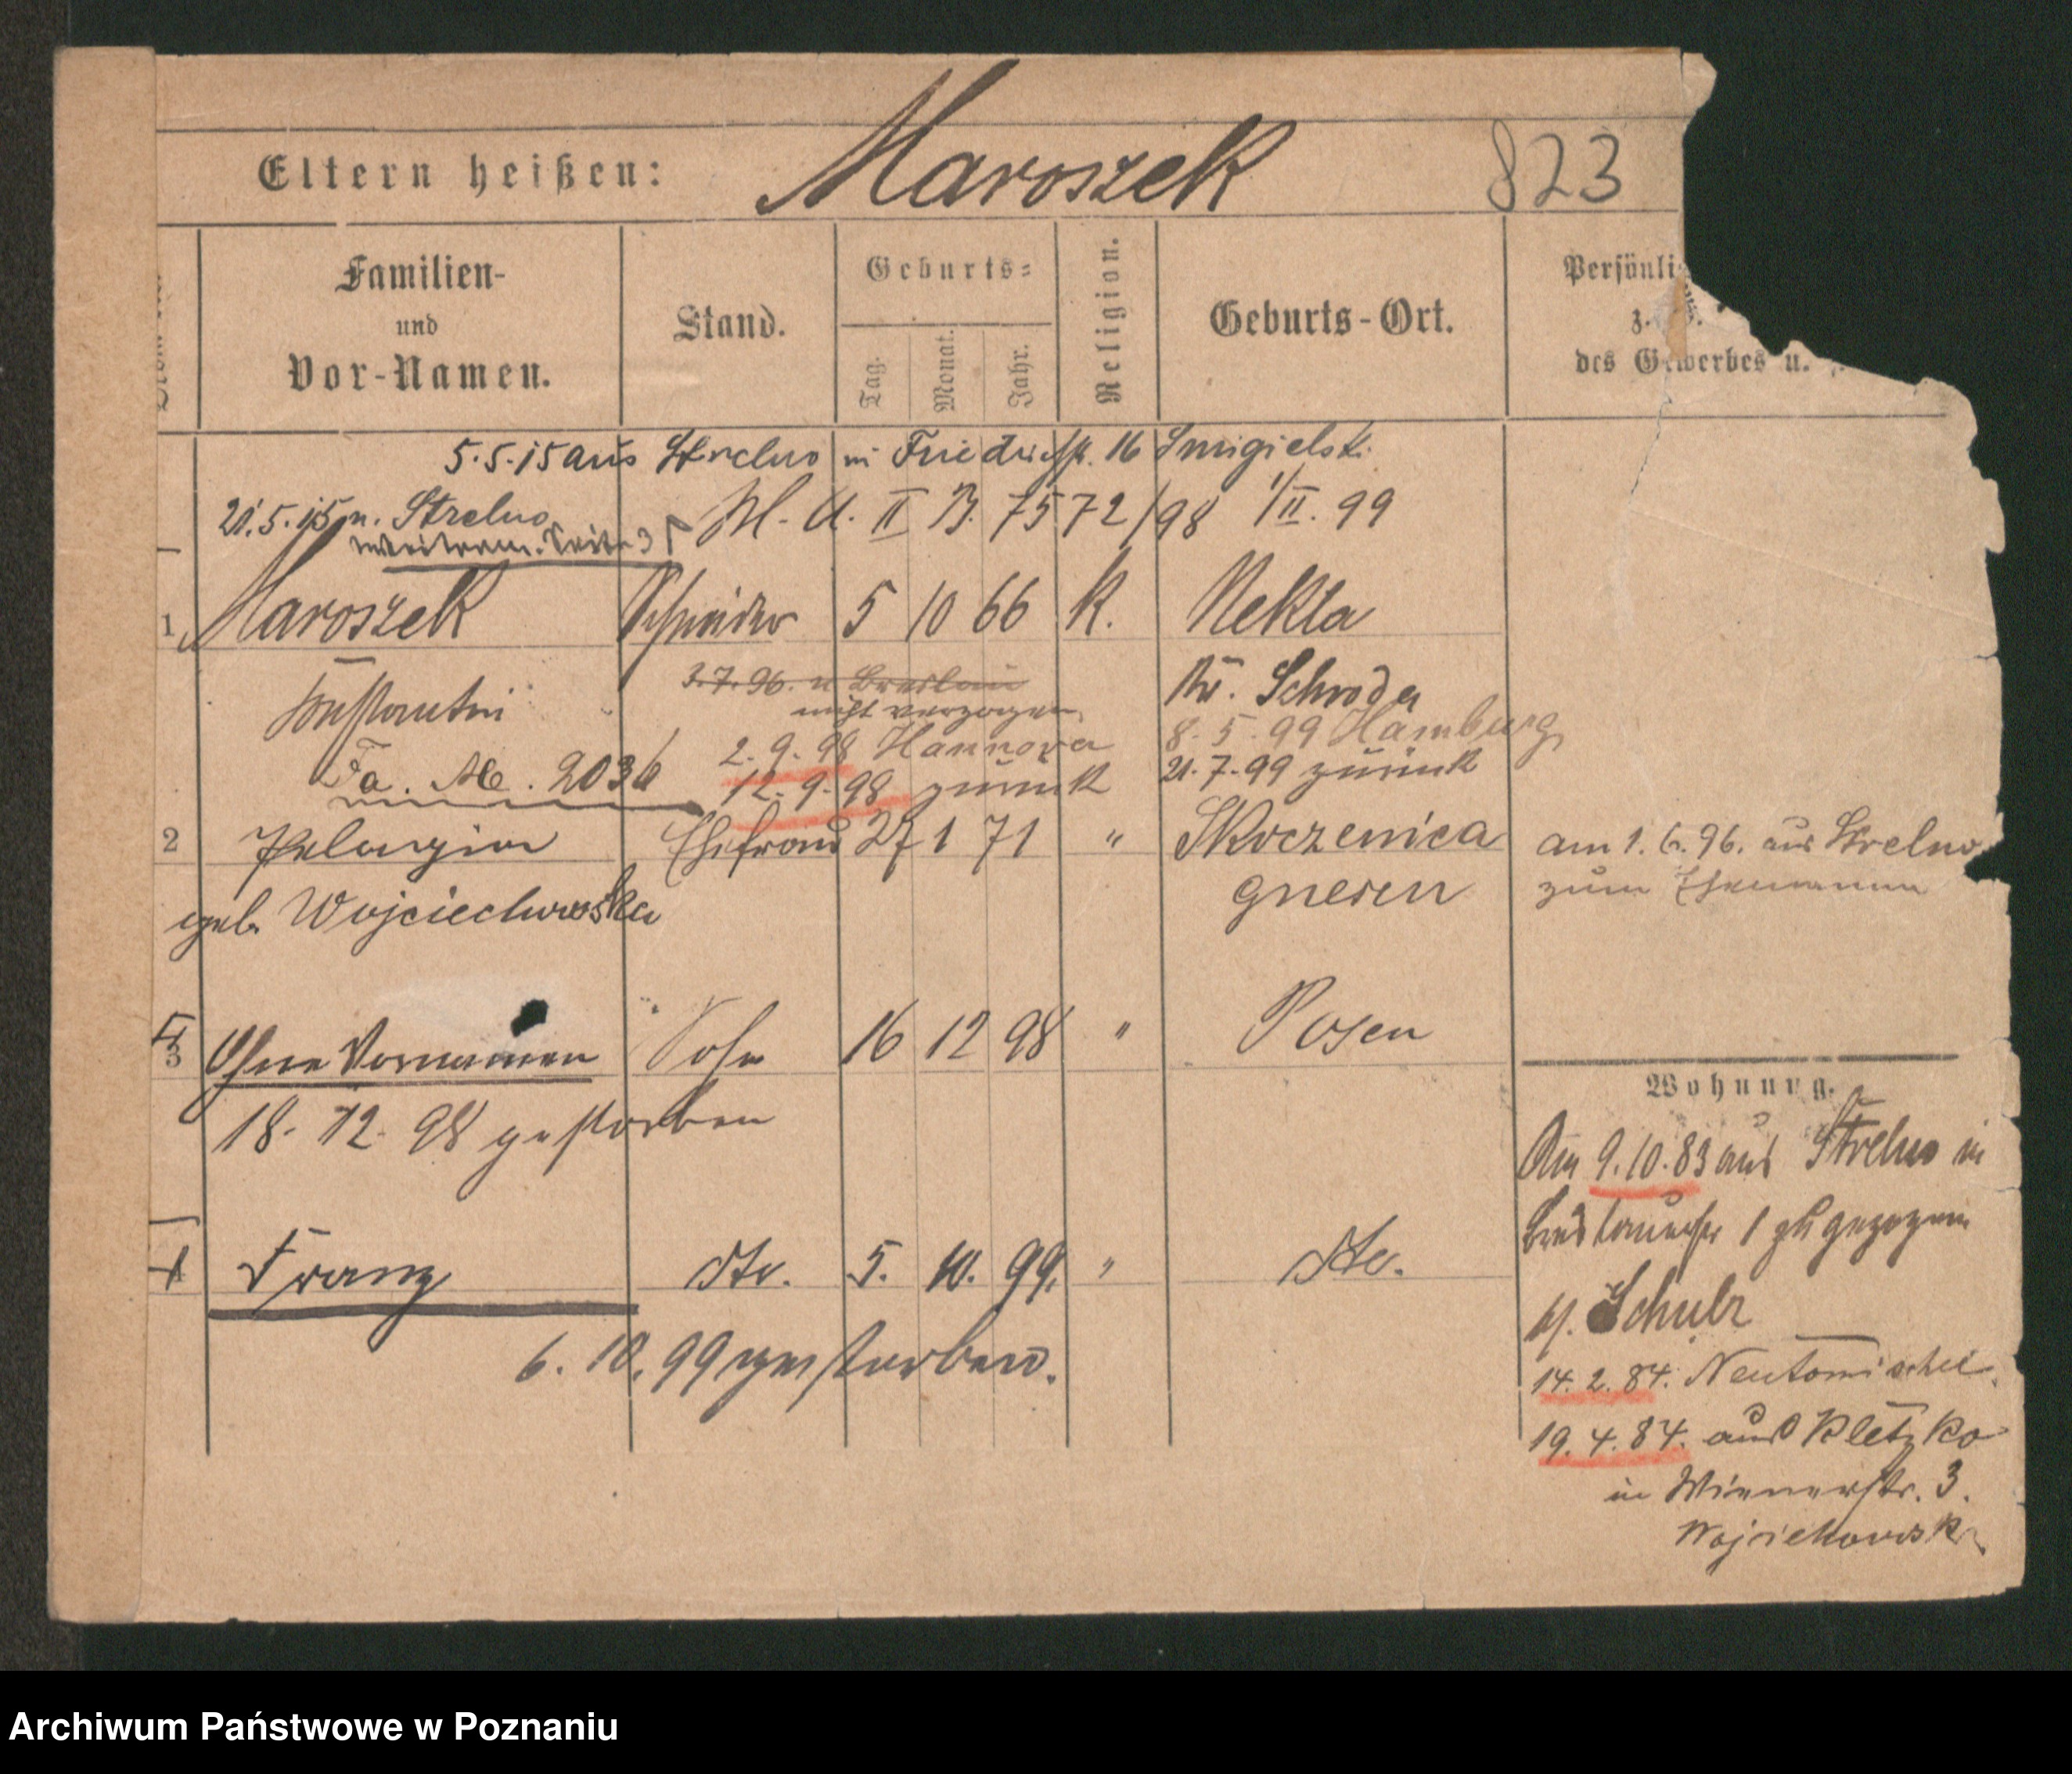 Eltern heißen: Maroszek 823
Familien-
und
Vor-Namen.
Stand.
Geburts-
Tag. Monat. Jahr.
Religion.
Geburts-Ort.
Persönli
z.
des Gewerbes u.
5.5.15 aus Strelno in Friedrichstr. 16 Smigielski
21.5.15 n. Strelno
Seite 3
Bl. A. II B. 7572/98 1/II. 99
1 Maroszek Schneider 5 10 66 K. Nekla
Konstantin
3.7.96. n Breslau
nicht verzogen
Kr. Schroda
2.9.98 Hannover
8.5.99 Hamburg
Fa. No. 2036
12.9.98 zurück
21.7.99 zurück
2 Pelagia Ehefrau 27 1 71 " Skorzenica
geb. Wojciechowska
Gnesen
am 1.6.96. aus Strelno
zum Ehemann
3 Ohne Vornamen Sohn 16 12 98 " Posen
18.12.98 gestorben
4 Franz dto. 5. 10. 99. " dto.
6.10.99 gestorben.
Wohnung.
Am 9.10.83 aus Strelno in
Breslauerstr 1 zugezogen
b/. Schulz
14.2.84. Neutomischel
19.4.84. aus Kletzko
in Wienerstr. 3.
Wojciehowski
Archiwum Państwowe w Poznaniu